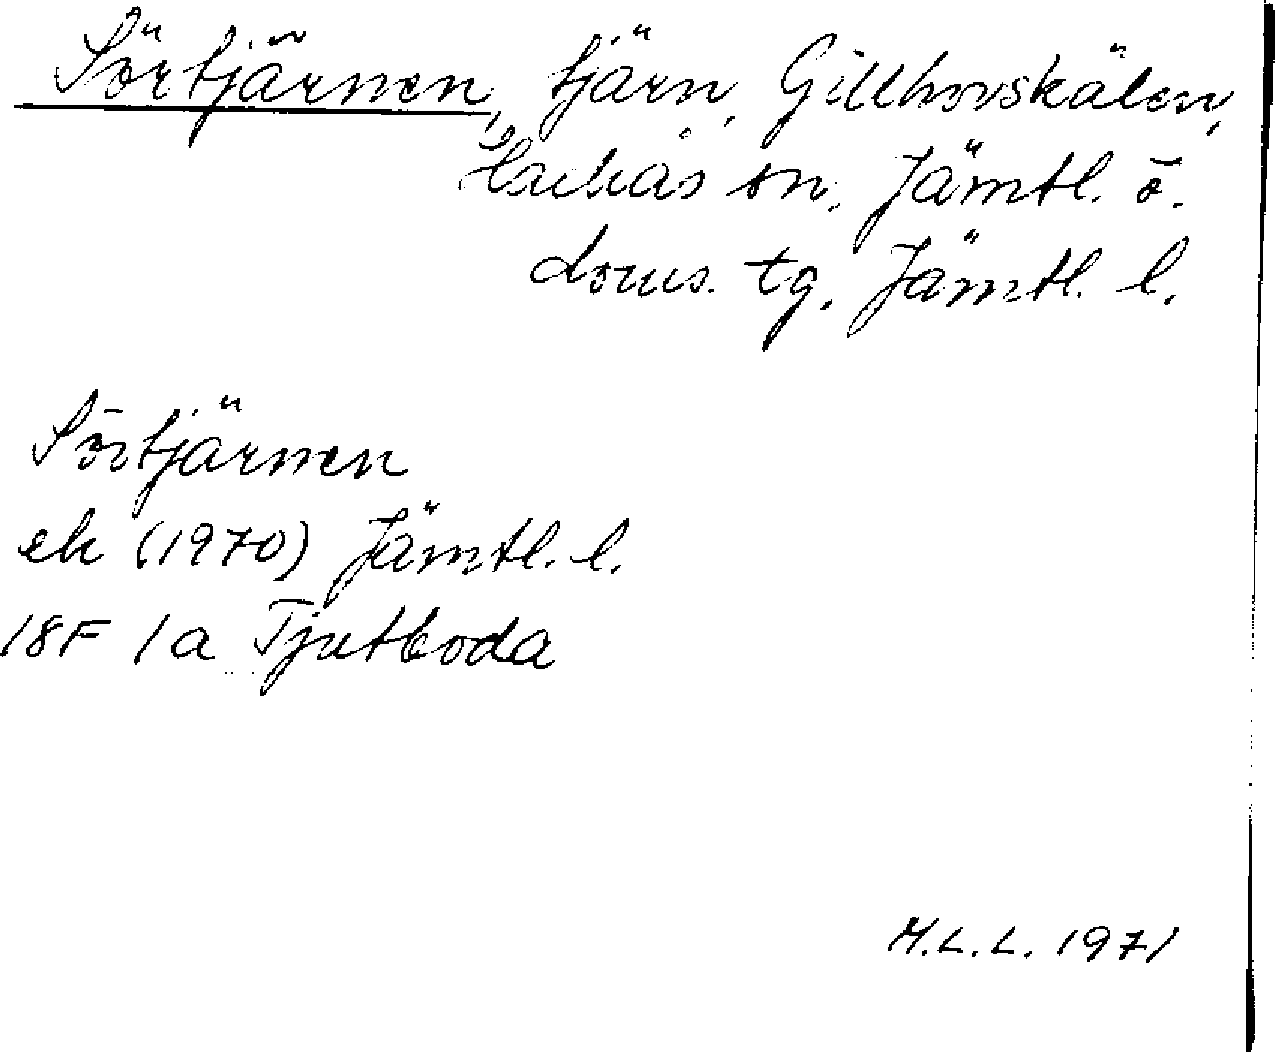 Sörtjärnen, tjärn, Gillhovskälen,
Hackås sn, Jämtl. ö.
doms. tg, Jämtl. l.
Sörtjärnen
ek (1970) Jämtl. l.
18F 1a Tjutboda
M.L.L. 1971